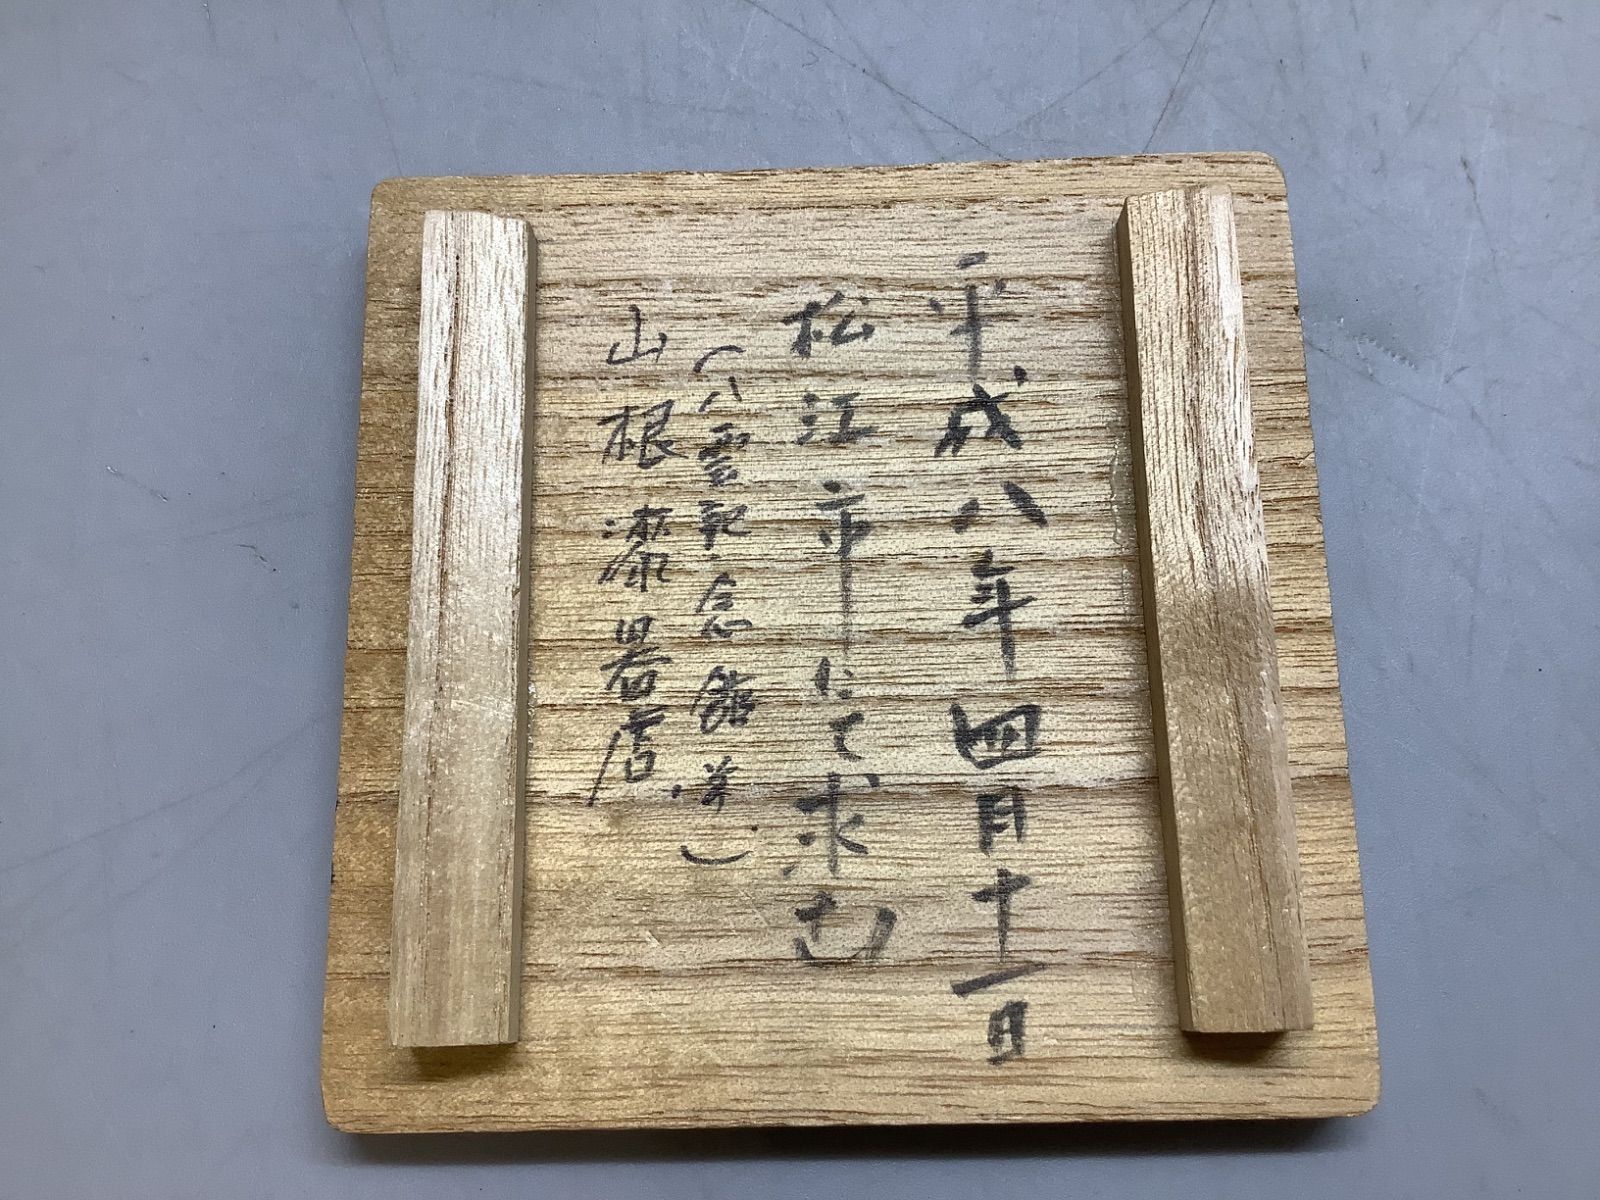 平成八年四月十一日
松江市にて求む
(八雲記念館前)
山根漆器店